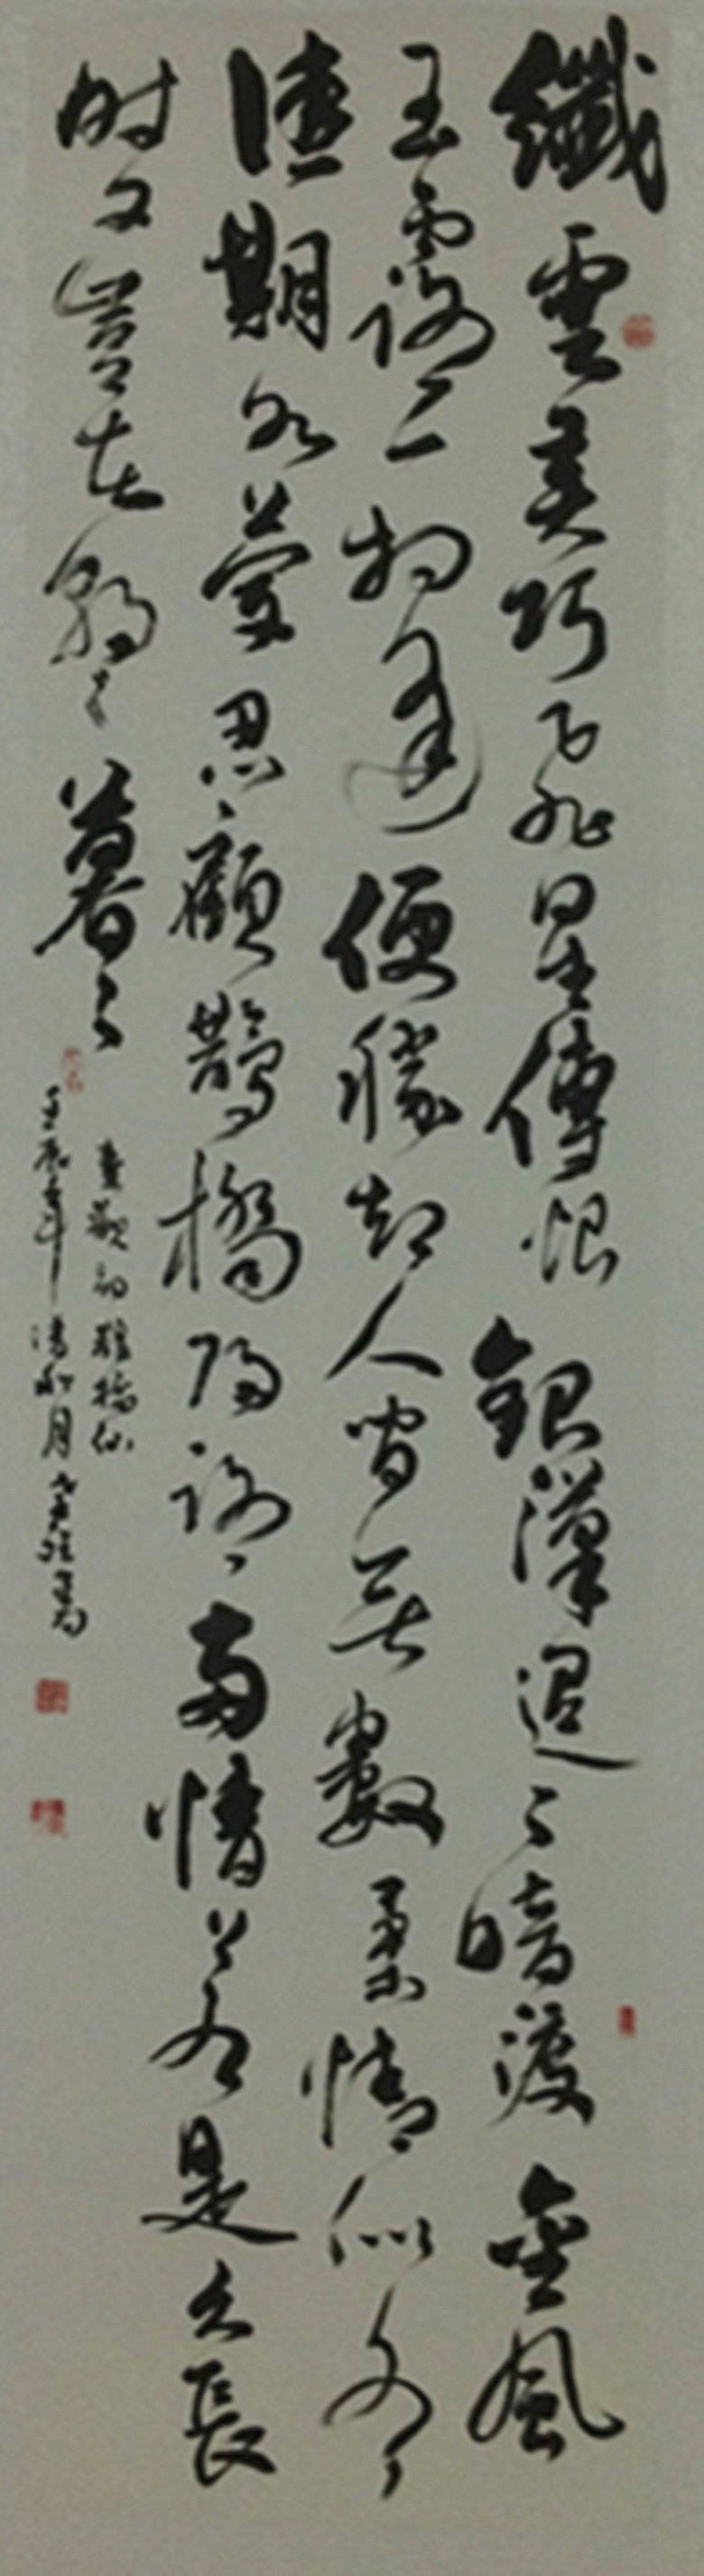 纖雲弄巧飛星傳恨銀漢迢々暗渡金風
玉露一相逢便勝卻人間無數柔情似水
佳期如夢忍顧鵲橋歸路兩情若是久長
時又豈在朝々暮々
秦觀詞鵲橋仙
壬辰年清和月書